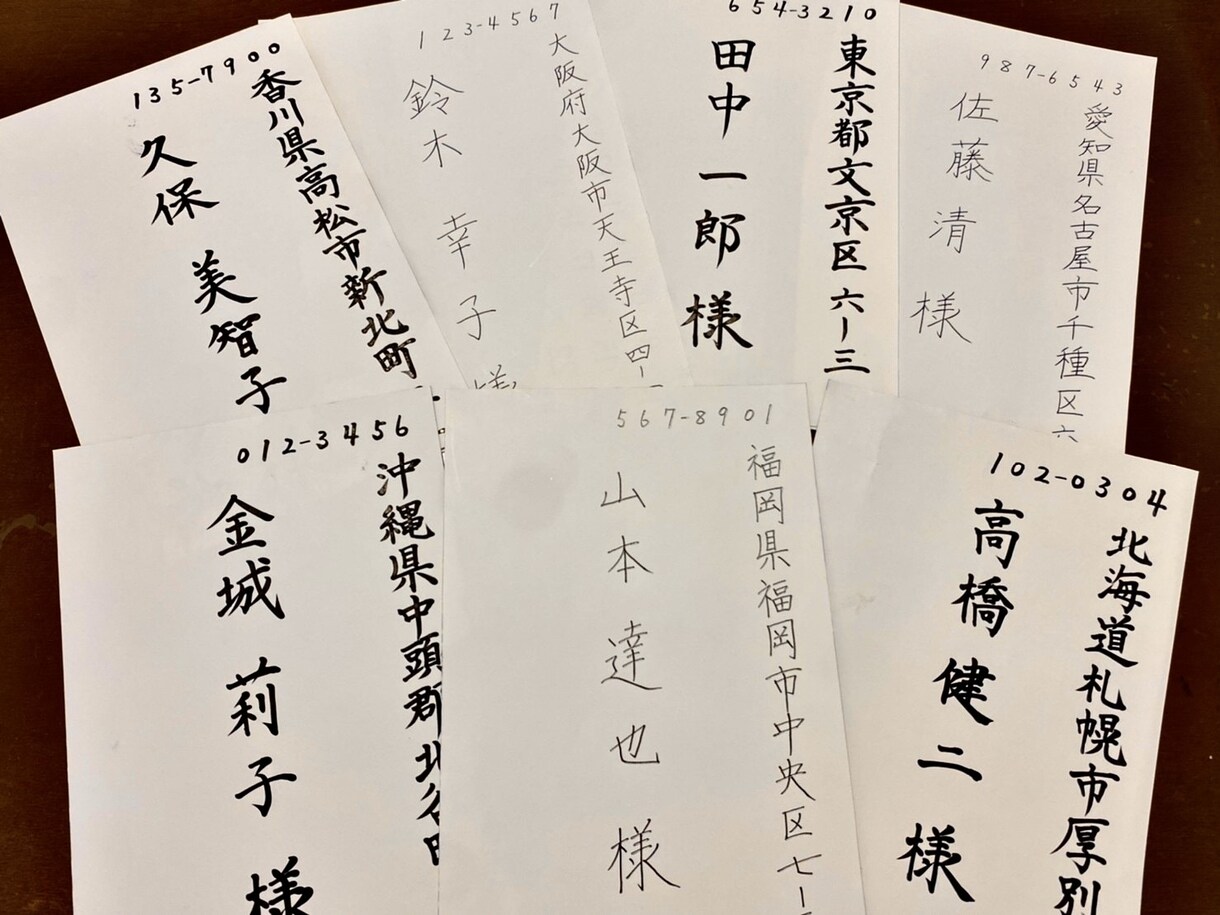 135-7900
香川県高松市新北町
久保 美智子
123-4567
大阪府大阪市天王寺区四-
鈴木 幸子 様
654-3210
東京都文京区六-三
田中 一郎 様
987-6543
愛知県名古屋市千種区六
佐藤 清 様
012-3456
沖縄県中頭郡北谷町
金城 莉子 様
567-8901
福岡県福岡市中央区七-
山本 達也 様
102-0304
北海道札幌市厚別
高橋 健二 様